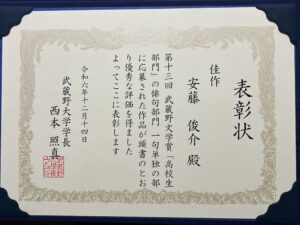 表彰状
佳作
安藤 俊介 殿
第十三回 武蔵野文学賞「高校生
部門」の俳句部門 一句単独の部
に応募された作品が頭書のとお
り優秀な評価を得ました
よってここに表彰します
令和六年十二月十四日
武蔵野大学学長
西本 照真